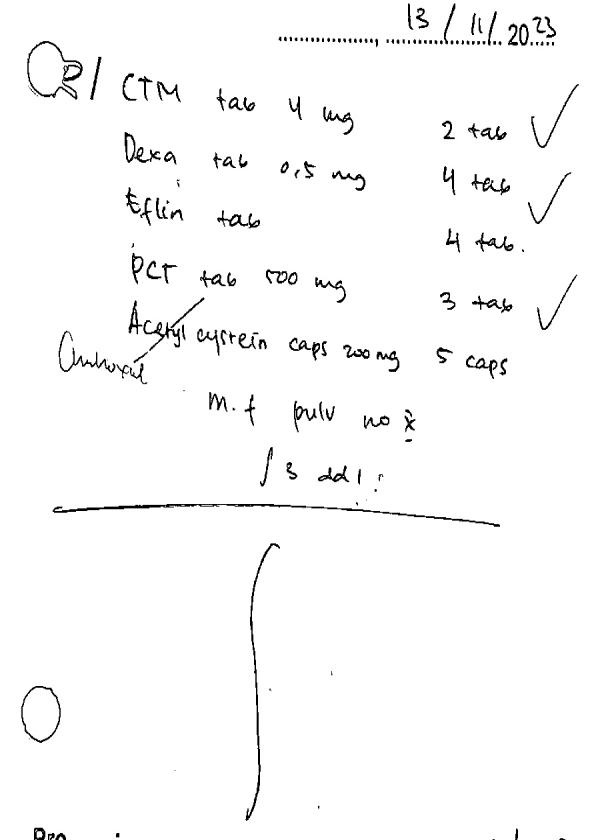 13/11/2023
R/ CTM tab 4 mg 2 tab ✓
Dexa tab 0,5 mg 4 tab ✓
Eflin tab 4 tab.
PCT tab 500 mg 3 tab ✓
Acetyl cystein caps 200 mg 5 caps
m.f pulv no X
∫ 3 dd 1